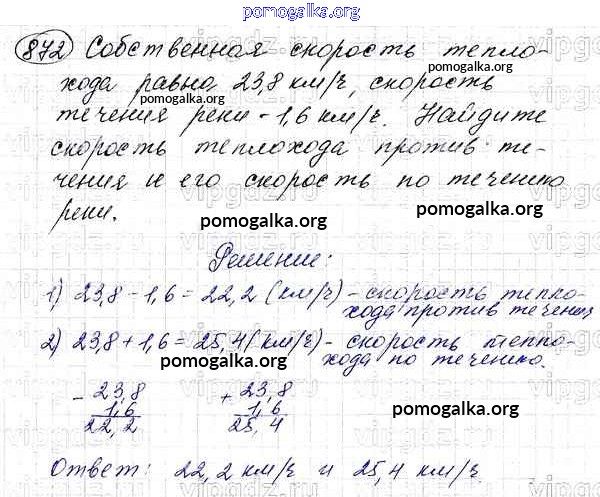 pomogalka.org
872 Собственная скорость тепло-
хода равна 23,8 км/ч, скорость
pomogalka.org pomogalka.org
течения реки - 1,6 км/ч. Найдите
скорость теплохода против те-
чения и его скорость по течению
реки.
pomogalka.org pomogalka.org
Решение:
1) 23,8 - 1,6 = 22,2 (км/ч) - скорость тепло-
хода против течения
2) 23,8 + 1,6 = 25,4 (км/ч) - скорость тепло-
хода по течению.
pomogalka.org pomogalka.org
- 23,8 + 23,8
1,6 1,6
22,2 25,4
pomogalka.org
Ответ: 22,2 км/ч и 25,4 км/ч.